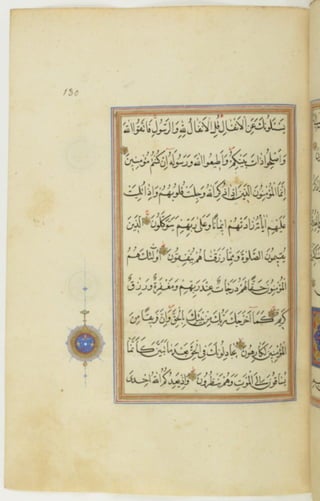 130
يَسْئَلُونَكَ عَنِ الْاَنْفَالِ قُلِ الْاَنْفَالُ لِلّٰهِ وَالرَّسُولِ فَاتَّقُوا اللّٰهَ
وَاَصْلِحُوا ذَاتَ بَيْنِكُمْ وَاَطِيعُوا اللّٰهَ وَرَسُولَهُ اِنْ كُنْتُمْ مُؤْمِنِينَ
اِنَّمَا الْمُؤْمِنُونَ الَّذِينَ اِذَا ذُكِرَ اللّٰهُ وَجِلَتْ قُلُوبُهُمْ وَاِذَا تُلِيَتْ
عَلَيْهِمْ اٰيَاتُهُ زَادَتْهُمْ اِيمَانًا وَعَلٰى رَبِّهِمْ يَتَوَكَّلُونَ الَّذِينَ
يُقِيمُونَ الصَّلٰوةَ وَمِمَّا رَزَقْنَاهُمْ يُنْفِقُونَ اُولٰئِكَ هُمُ
الْمُؤْمِنُونَ حَقًّا لَهُمْ دَرَجَاتٌ عِنْدَ رَبِّهِمْ وَمَغْفِرَةٌ وَرِزْقٌ
كَرِيمٌ كَمَا اَخْرَجَكَ رَبُّكَ مِنْ بَيْتِكَ بِالْحَقِّ وَاِنَّ فَرِيقًا مِنَ
الْمُؤْمِنِينَ لَكَارِهُونَ يُجَادِلُونَكَ فِي الْحَقِّ بَعْدَ مَا تَبَيَّنَ كَاَنَّمَا
يُسَاقُونَ اِلَى الْمَوْتِ وَهُمْ يَنْظُرُونَ وَاِذْ يَعِدُكُمُ اللّٰهُ اِحْدَى